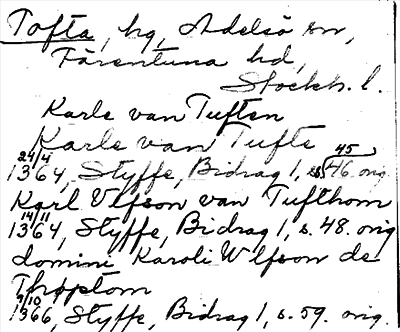 Tofta, hg, Adelsö sn,
Färentuna hd,
Stockh. l.
Karle van Tuften
Karle van Tufte
24/4 1364, Styffe, Bidrag 1, s. 45 46 orig.
Karl Ulfson van Tufthom
14/11 1364, Styffe, Bidrag 1, s. 48. orig
domini Karoli Wlfson de
Thoptom
9/10 1366, Styffe, Bidrag 1, s. 59. orig.